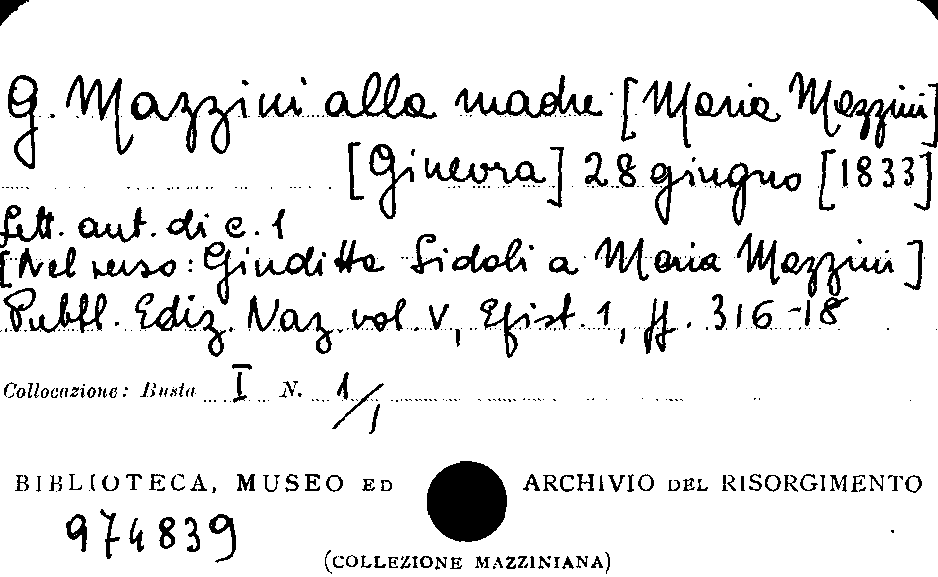 G. Mazzini alla madre [Maria Mazzini]
[Ginevra] 28 giugno [1833]
Lett. aut. di c. 1
[Nel verso: Giuditta Sidoli a Maria Mazzini]
Pubbl. Ediz. Naz. vol. V, Epist. 1, pp. 316-18
Collocazione: Busta I N. 1/1
BIBLIOTECA, MUSEO ED ARCHIVIO DEL RISORGIMENTO
974839
(COLLEZIONE MAZZINIANA)